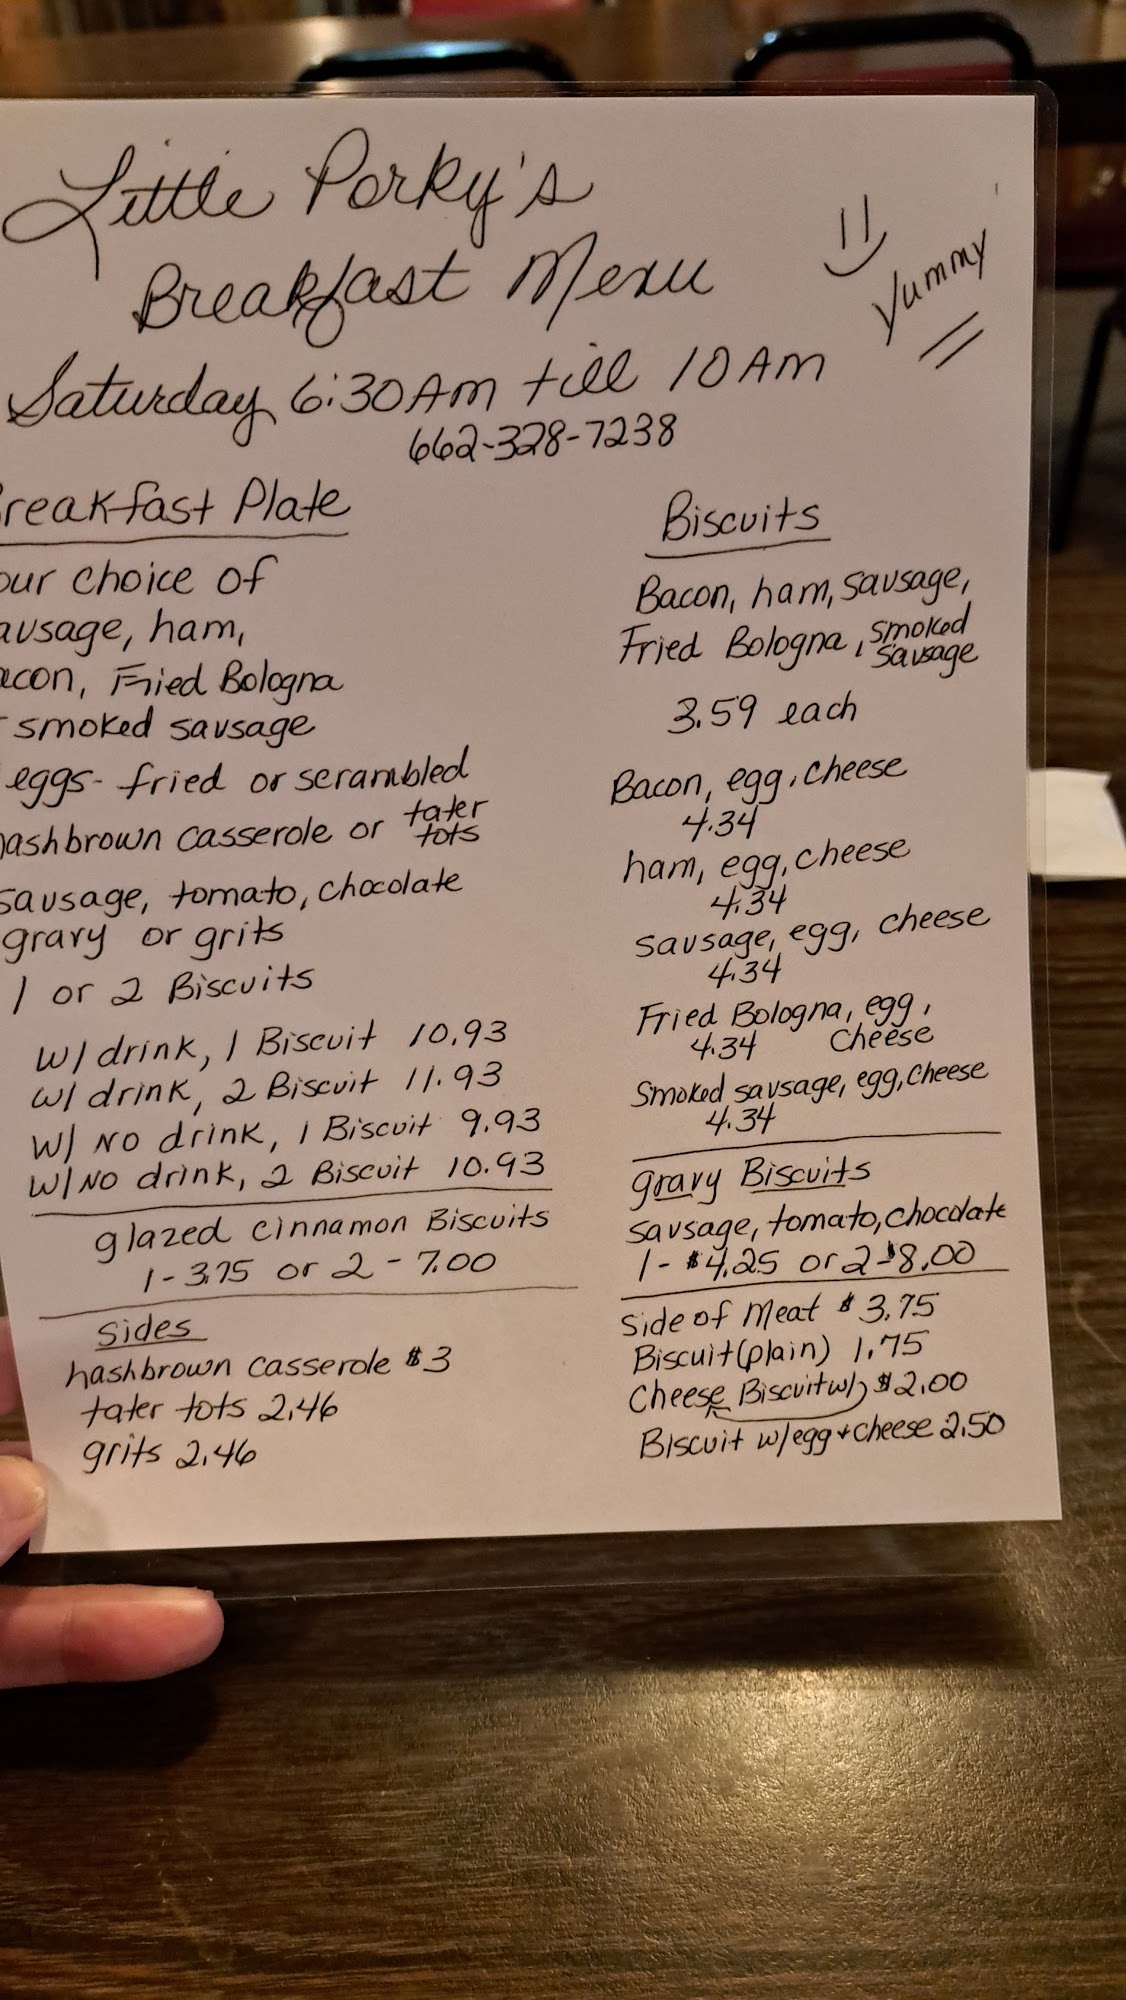 Little Porky's
Breakfast Menu
Yummy
Saturday 6:30AM till 10AM
662-328-7238
reakfast Plate
our choice of
ausage, ham,
acon, Fried Bologna
smoked sausage
eggs- fried or scrambled
hashbrown casserole or tater tots
sausage, tomato, chocolate
gravy or grits
1 or 2 Biscuits
w/ drink, 1 Biscuit 10.93
w/ drink, 2 Biscuit 11.93
W/ NO drink, 1 Biscuit 9.93
W/ NO drink, 2 Biscuit 10.93
glazed cinnamon Biscuits
1-3.75 or 2-7.00
Sides
hashbrown casserole $3
tater tots 2.46
grits 2.46
Biscuits
Bacon, ham, sausage,
Fried Bologna, smoked sausage
3.59 each
Bacon, egg, cheese
4.34
ham, egg, cheese
4.34
sausage, egg, cheese
4.34
Fried Bologna, egg,
4.34 cheese
Smoked sausage, egg, cheese
4.34
gravy Biscuits
sausage, tomato, chocolate
1- $4.25 or 2-$8.00
Side of Meat $3.75
Biscuit (plain) 1.75
Cheese Biscuit w/ $2.00
Biscuit w/egg + cheese 2.50